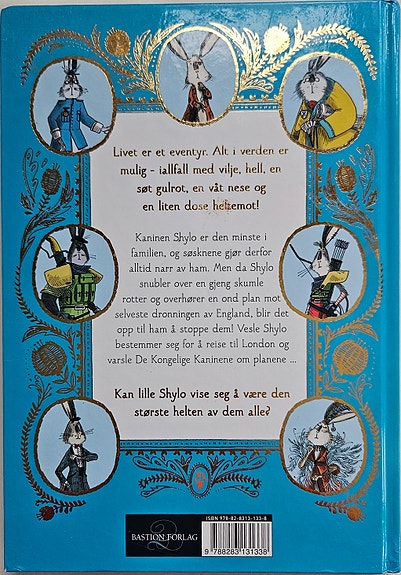 Livet er et eventyr. Alt i verden er
mulig – iallfall med vilje, hell, en
søt gulrot, en våt nese og
en liten dose heltemot!
Kaninen Shylo er den minste i
familien, og søsknene gjør derfor
alltid narr av ham. Men da Shylo
snubler over en gjeng skumle
rotter og overhører en ond plan mot
selveste dronningen av England, blir det
opp til ham å stoppe dem! Vesle Shylo
bestemmer seg for å reise til London og
varsle De Kongelige Kaninene om planene ...
Kan lille Shylo vise seg å være den
største helten av dem alle?
BASTION FORLAG
ISBN 978-82-8313-133-8
9 788283 131338